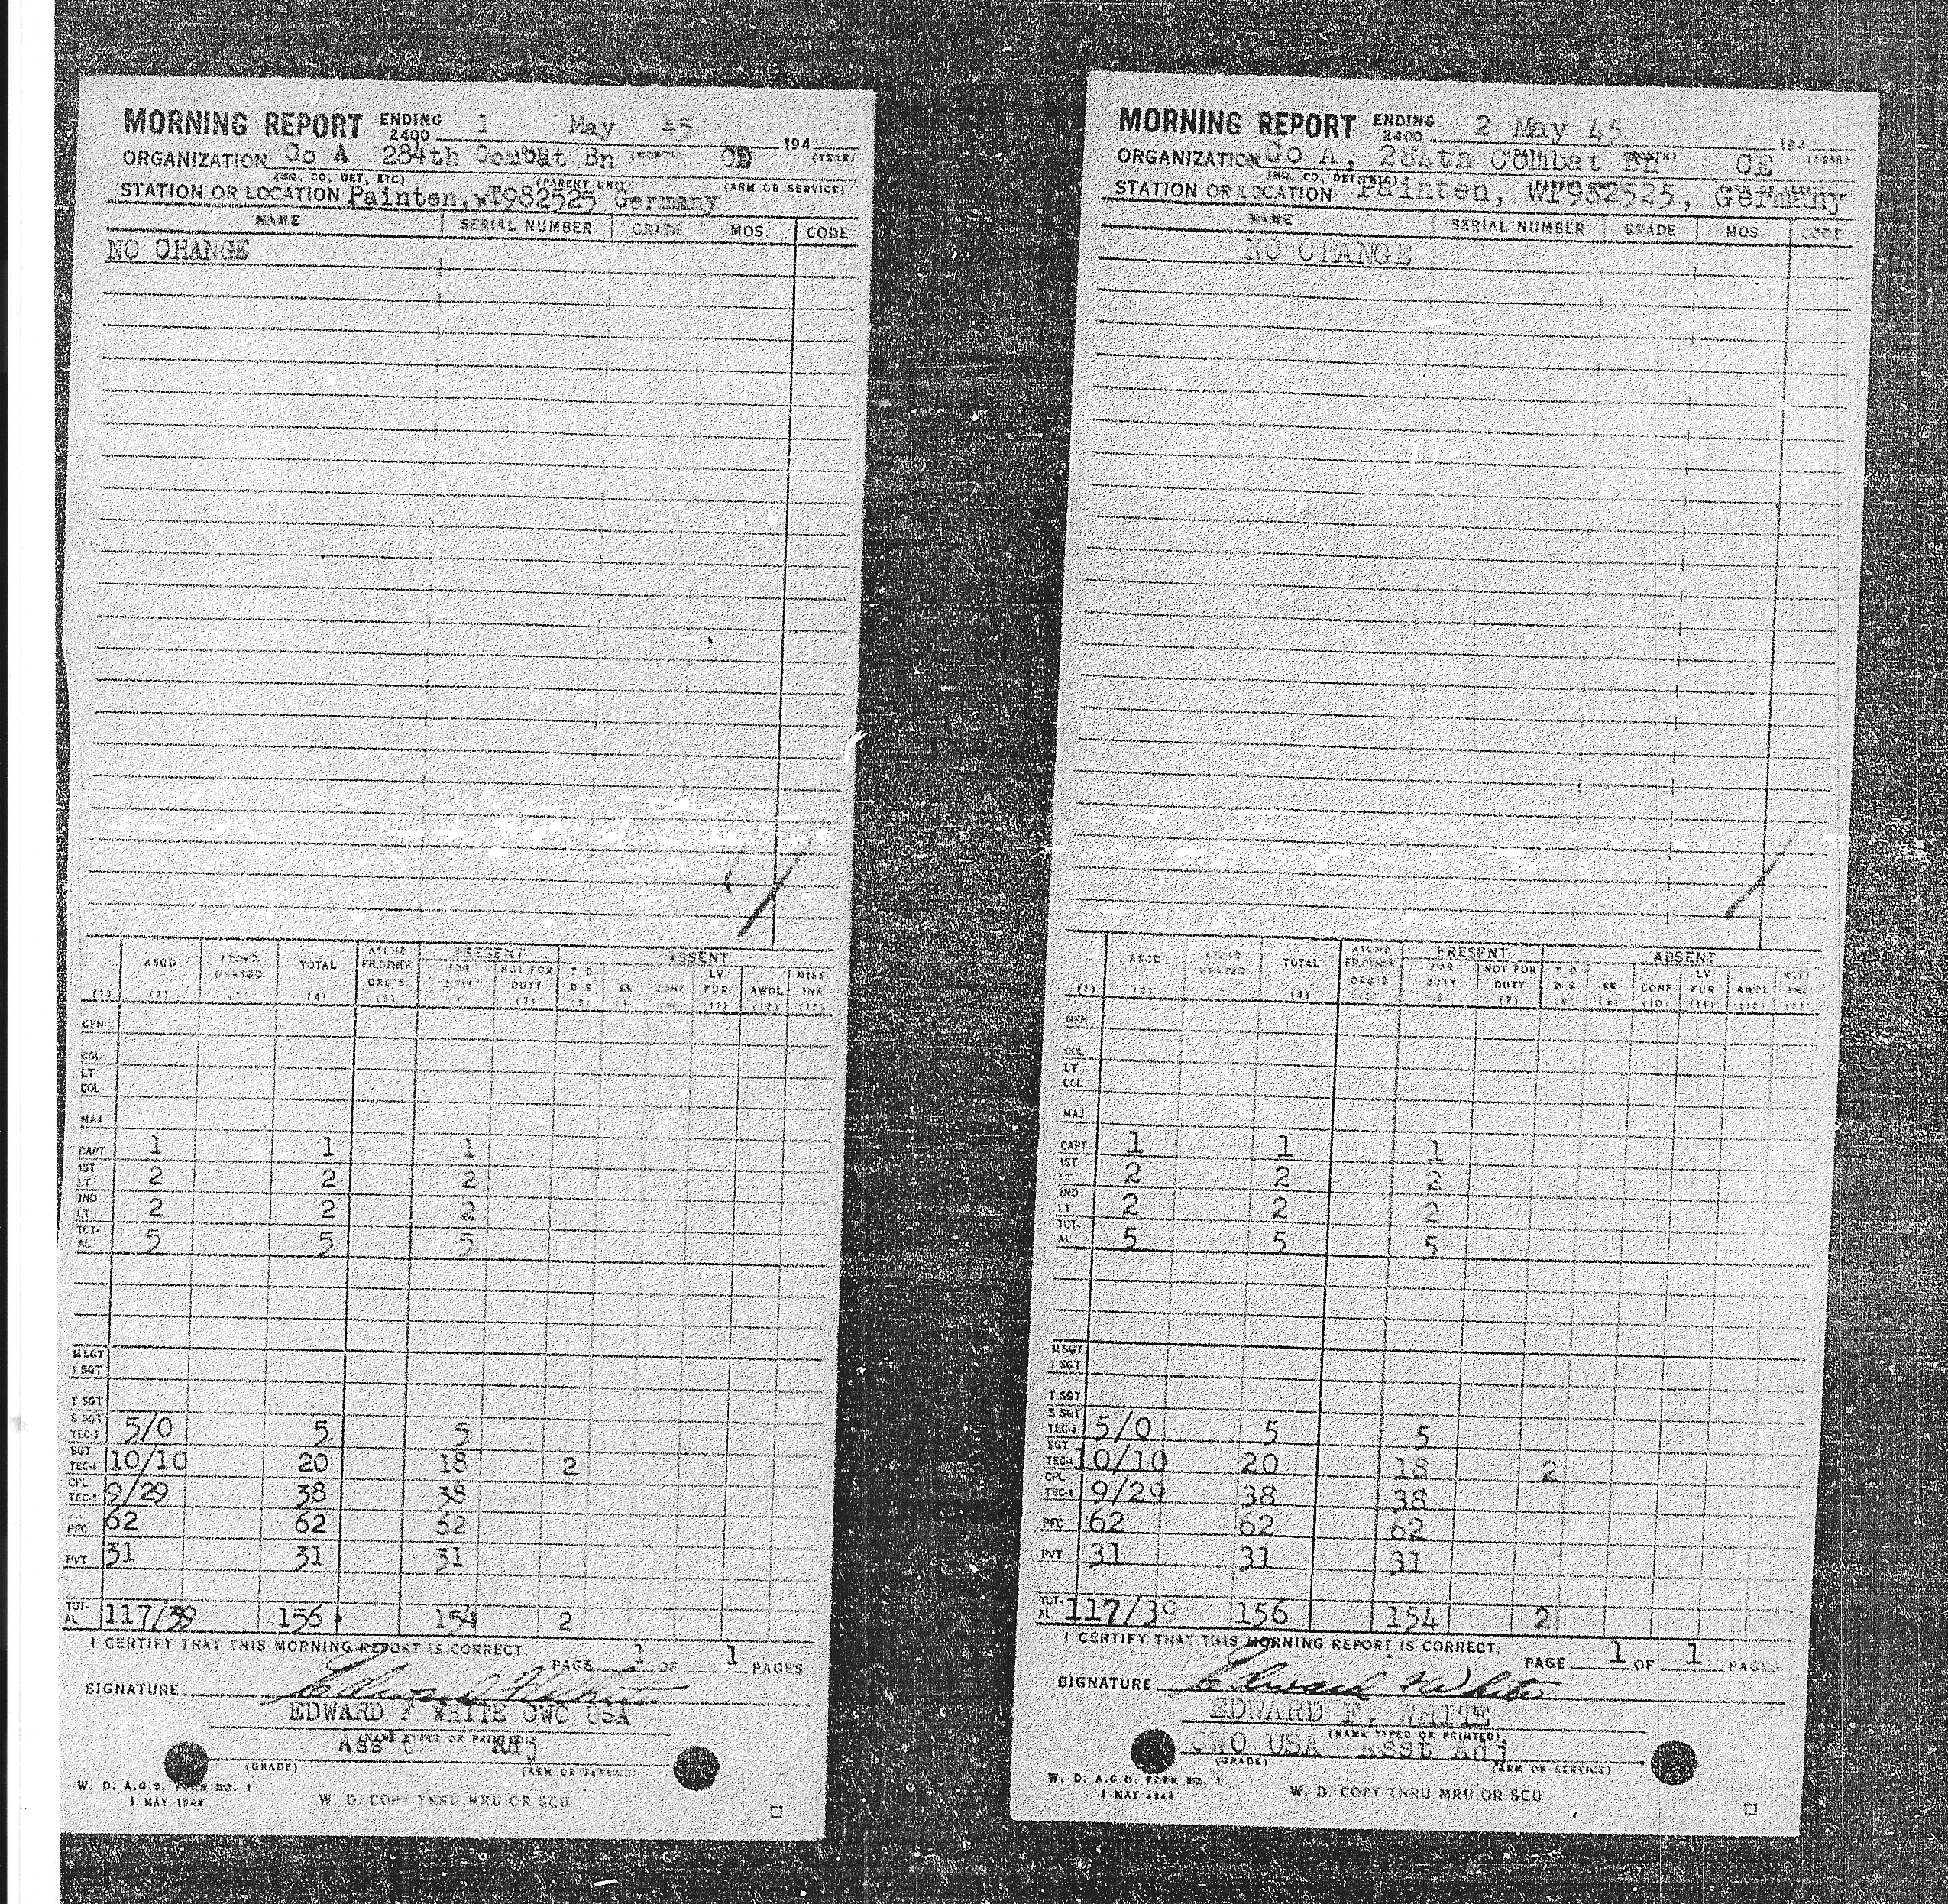 MORNING REPORT ENDING 2400 1 May 45 194
(YEAR)
ORGANIZATION Co A 284th Combat Bn CE
(HQ, CO, DET, ETC) (PARENT UNIT) (ARM OR SERVICE)
STATION OR LOCATION Painten, wT982525 Germany
NAME SERIAL NUMBER GRADE MOS. CODE
NO CHANGE
PRESENT ABSENT
ASGD ATCHD UNASGD TOTAL ATCHD FR OTHER ORG'S FOR DUTY NOT FOR DUTY T D D S SK CONF LV FUR AWOL MISS INR
(1) (2) (3) (4) (5) (7) (11) (12) (13)
GEN
COL
LT COL
MAJ
CAPT 1 1 1
1ST LT 2 2 2
2ND LT 2 2 2
TOT-AL 5 5 5
M SGT
1 SGT
T SGT
S SGT TEC-3 5/0 5 5
SGT TEC-4 10/10 20 18 2
CPL TEC-5 9/29 38 38
PFC 62 62
PVT 31 31 31
TOT-AL 117/39 156 154 2
I CERTIFY THAT THIS MORNING REPORT IS CORRECT.
PAGE 1 OF 1 PAGES
SIGNATURE Edward F White
EDWARD F WHITE CWO USA
(NAME TYPED OR PRINTED)
Ass't Adj
(GRADE) (ARM OR SERVICE)
W. D. A.G.O. FORM NO. 1
1 MAY 1944
W. D. COPY THRU MRU OR SCU
MORNING REPORT ENDING 2400 2 May 45 194
(YEAR)
ORGANIZATION Co A, 284th Combat Bn CE
(HQ, CO, DET, ETC)
STATION OR LOCATION Painten, WT982525, Germany
NAME SERIAL NUMBER GRADE MOS CODE
NO CHANGE
PRESENT ABSENT
ASGD ATCHD UNASGD TOTAL ATCHD FR OTHER ORG'S FOR DUTY NOT FOR DUTY T D D S SK CONF LV FUR AWOL MISS INR
(1) (2) (4) (7) (10) (11)
GEN
COL
LT COL
MAJ
CAPT 1 1 1
1ST LT 2 2 2
2ND LT 2 2 2
TOT-AL 5 5 5
M SGT
1 SGT
T SGT
S SGT TEC-3 5/0 5 5
SGT TEC-4 10/10 20 18 2
CPL TEC-5 9/29 38 38
PFC 62 62 62
PVT 31 31 31
TOT-AL 117/39 156 154 2
I CERTIFY THAT THIS MORNING REPORT IS CORRECT:
PAGE 1 OF 1 PAGES
SIGNATURE Edward F White
EDWARD F. WHITE
(NAME TYPED OR PRINTED)
CWO USA Asst Adj
(GRADE) (ARM OR SERVICE)
W. D. A.G.O. FORM NO. 1
1 MAY 1944
W. D. COPY THRU MRU OR SCU